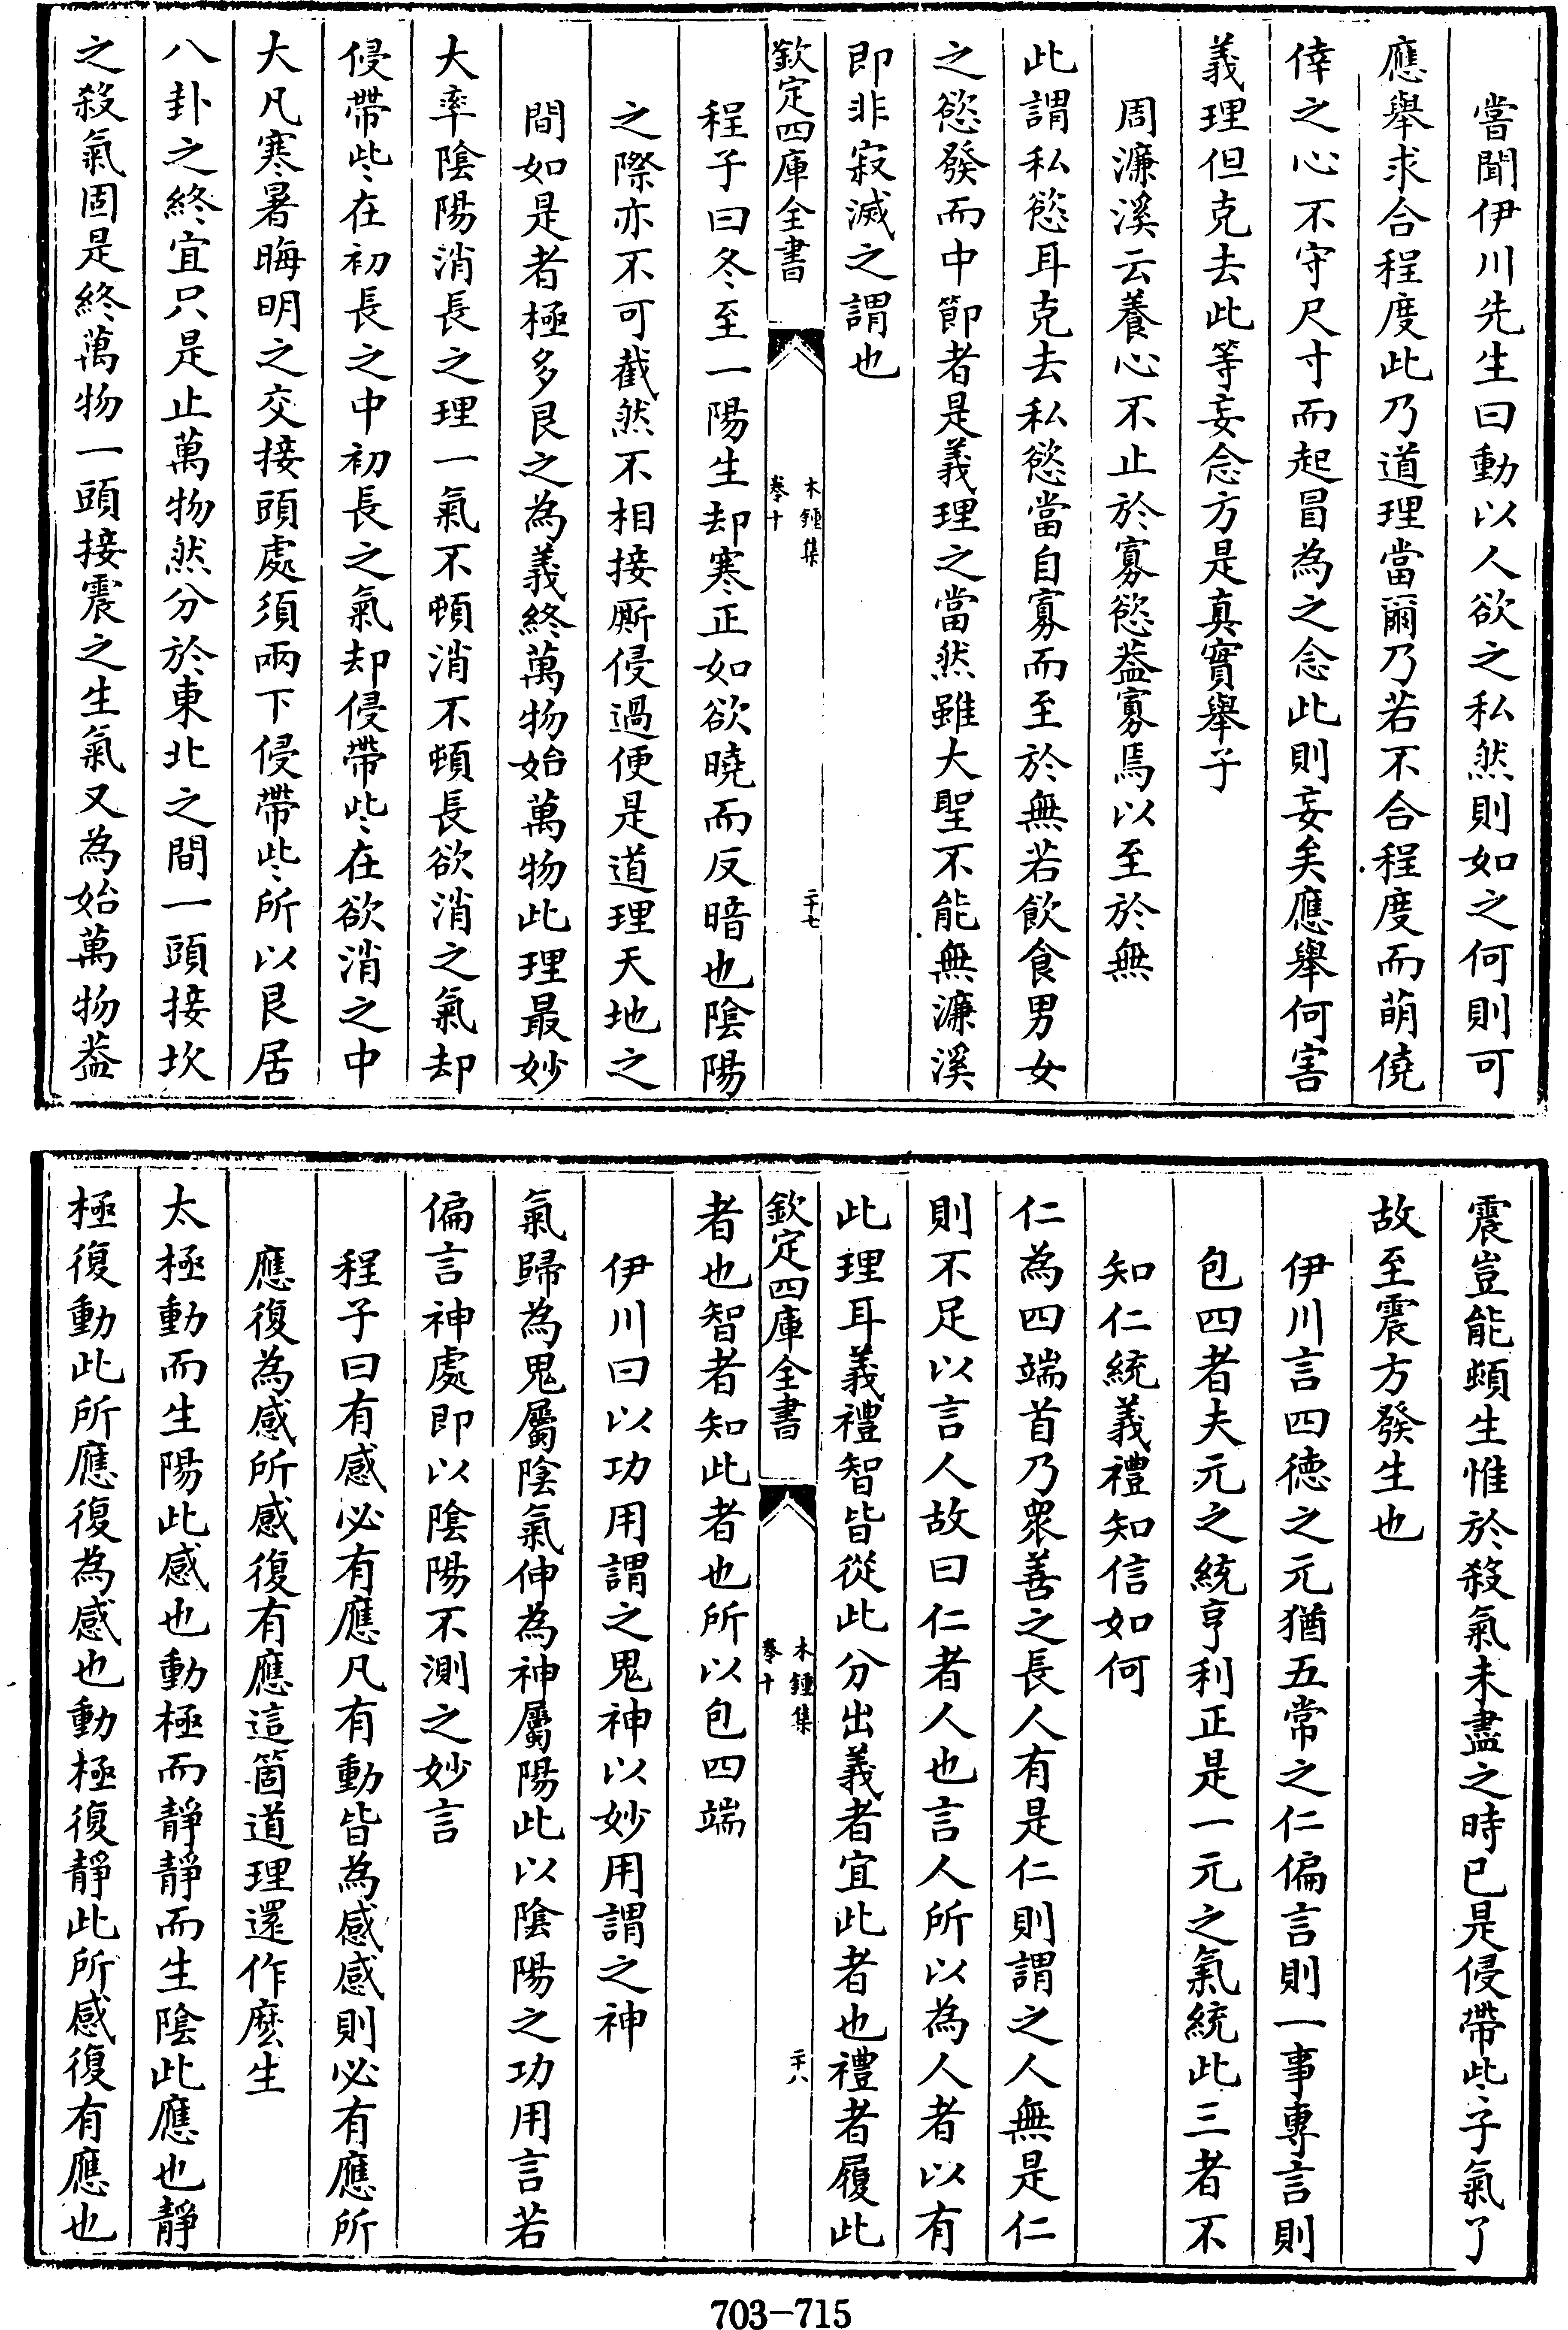 嘗聞伊川先生曰動以人欲之私然則如之何則可
應舉求合程度此乃道理當爾乃若不合程度而萌僥
倖之心不守尺寸而起冒為之念此則妄矣應舉何害
義理但克去此等妄念方是真實舉子
周濂溪云養心不止於寡慾葢寡焉以至於無
此謂私慾耳克去私慾當自寡而至於無若飲食男女
之慾發而中節者是義理之當然雖大聖不能無濂溪
即非寂滅之謂也
欽定四庫全書
木鍾集
卷十
二十七
程子曰冬至一陽生却寒正如欲曉而反暗也陰陽
之際亦不可截然不相接厮侵過便是道理天地之
間如是者極多艮之為義終萬物始萬物此理最妙
大率陰陽消長之理一氣不頓消不頓長欲消之氣却
侵帶些在初長之中初長之氣却侵帶些在欲消之中
大凡寒暑晦明之交接頭處須兩下侵帶些所以艮居
八卦之終宜只是止萬物然分於東北之間一頭接坎
之殺氣固是終萬物一頭接震之生氣又為始萬物葢
震豈能頓生惟於殺氣未盡之時已是侵帶些子氣了
故至震方發生也
伊川言四徳之元猶五常之仁偏言則一事專言則
包四者夫元之統亨利正是一元之氣統此三者不
知仁統義禮知信如何
仁為四端首乃衆善之長人有是仁則謂之人無是仁
則不足以言人故曰仁者人也言人所以為人者以有
此理耳義禮智皆從此分出義者宜此者也禮者履此
欽定四庫全書
木鍾集
卷十
二十八
者也智者知此者也所以包四端
伊川曰以功用謂之鬼神以妙用謂之神
氣歸為鬼屬陰氣伸為神屬陽此以陰陽之功用言若
偏言神處即以陰陽不測之妙言
程子曰有感必有應凡有動皆為感感則必有應所
應復為感所感復有應這箇道理還作麽生
太極動而生陽此感也動極而靜靜而生陰此應也靜
極復動此所應復為感也動極復靜此所感復有應也
703-715